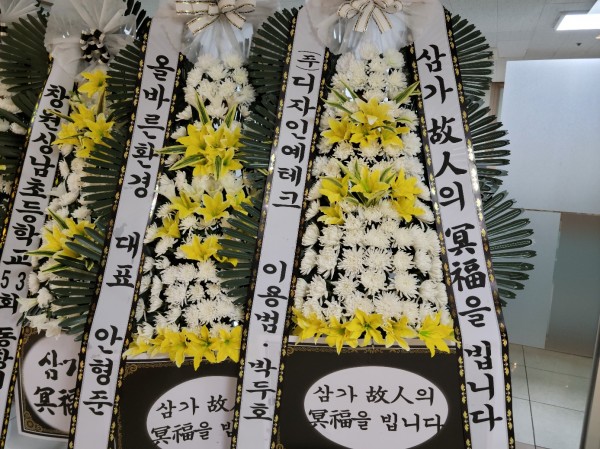 창원상남초등학교 53회 동창
올바른환경 대표 안형준
(주)디자인예테크 이용범·박두호
삼가 故人의 冥福을 빕니다
삼가
冥福
삼가 故人의
冥福을 빕니다
삼가 故人의
冥福을 빕니다